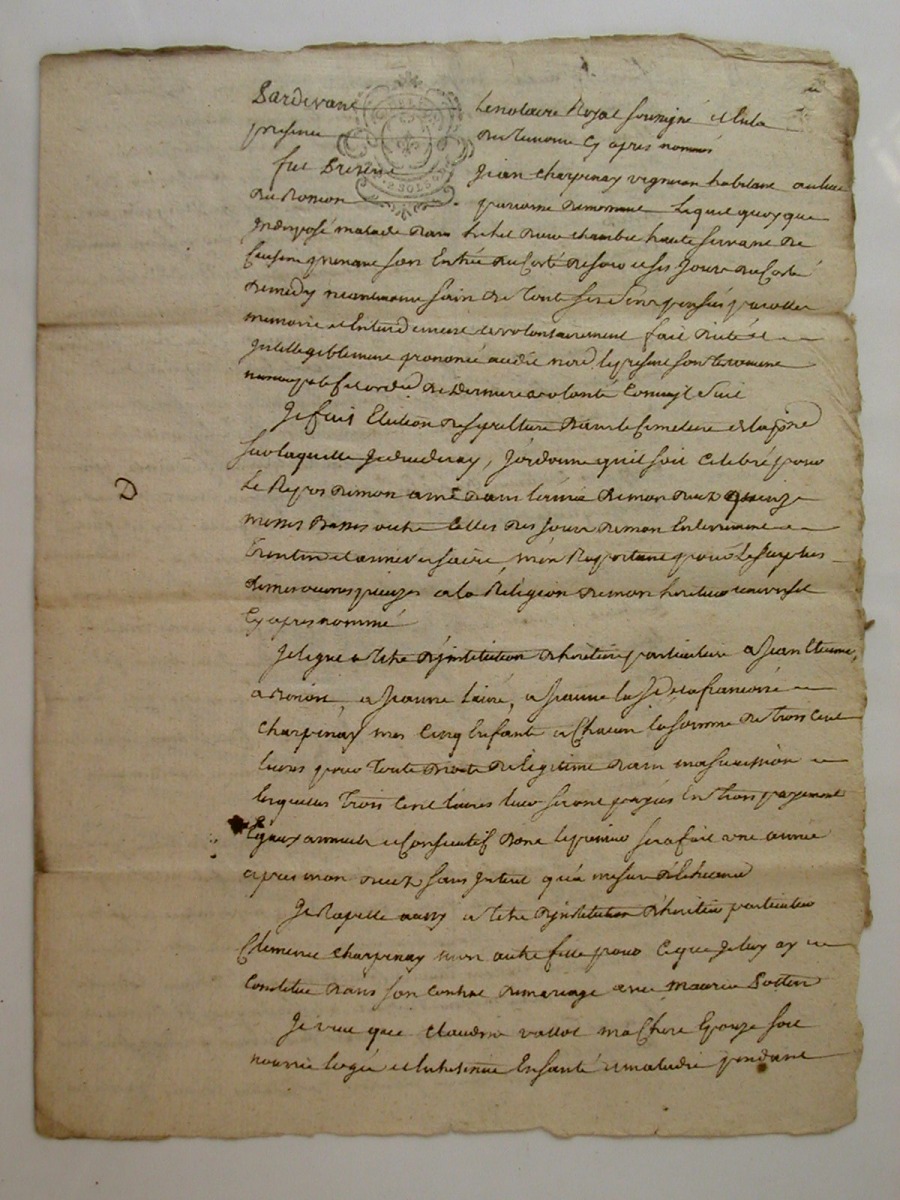 Pardevant Le notaire Royal soussigné et en la
presence des temoins cy apres nommés
fut present Jean Charpenay vigneron habitant au lieu
du paroisse de lequel quoy que
Indisposé malade dans lit d'une chambre haute servant de
Cuisine prenant son Entrée du Coté de soir et ses Jours du Coté
de midy neantmoins sain de tout ses sens pensée parolle
memoire et Entendement a volontairement fait dicté et
Intelligiblement prononcé audit not. le present son testament
nuncupatif et ordce de derniere volonté Comme s'suit
Je fais Election de sepulture dans le Cimetiere de la psse
sur laquelle Je decederay, J'ordonne qu'il soit Celebré pour
Le Repos de mon ame dans l'année de mon decez quinze
messes Basses outre Celles des jours de mon Enterrement
trentin et anniversaire, m'en Rapportant pour Le surplus
de mes œuvres pieuzes a la Religion de mon heritier universel
Cy apres nommé
Je legue a titre d'institution d'heritier particuliere a Jean Etienne,
a Benoit, a Jeanne a Jeanne et a françoise
Charpenay mes Cinq Enfants a Chacun la somme de trois Cent
livres pour toute droit de legitime dans ma succession
lesquelles trois Cent livres leur seront payés En trois payement
Egaux annuels et Consecutifs dont le premier sera fait une année
apres mon decez sans Interet qu'a mesure d'Echeance
Je Rapelle aussy a titre d'institution d'heritier particulier
Clemence Charpenay mon autre fille pour Ce que Je luy ay
Constitué dans son Contrat de mariage avec Maurice Sottin
Je veux que Claudine vallot ma Chere Epouze soit
nourrie logée et Entretenüe En santé et maladie pendant